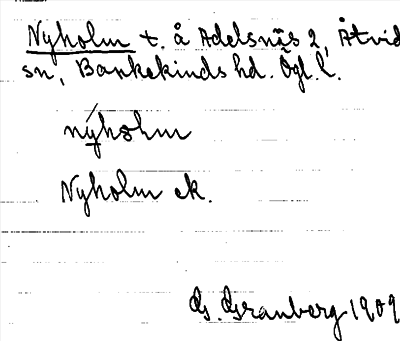 Nyholm t. å Adelsnäs 2, Åtvid
sn, Bankekinds hd. Ögl. l.
nýhòlm
Nyholm ek.
G. Granberg 1909